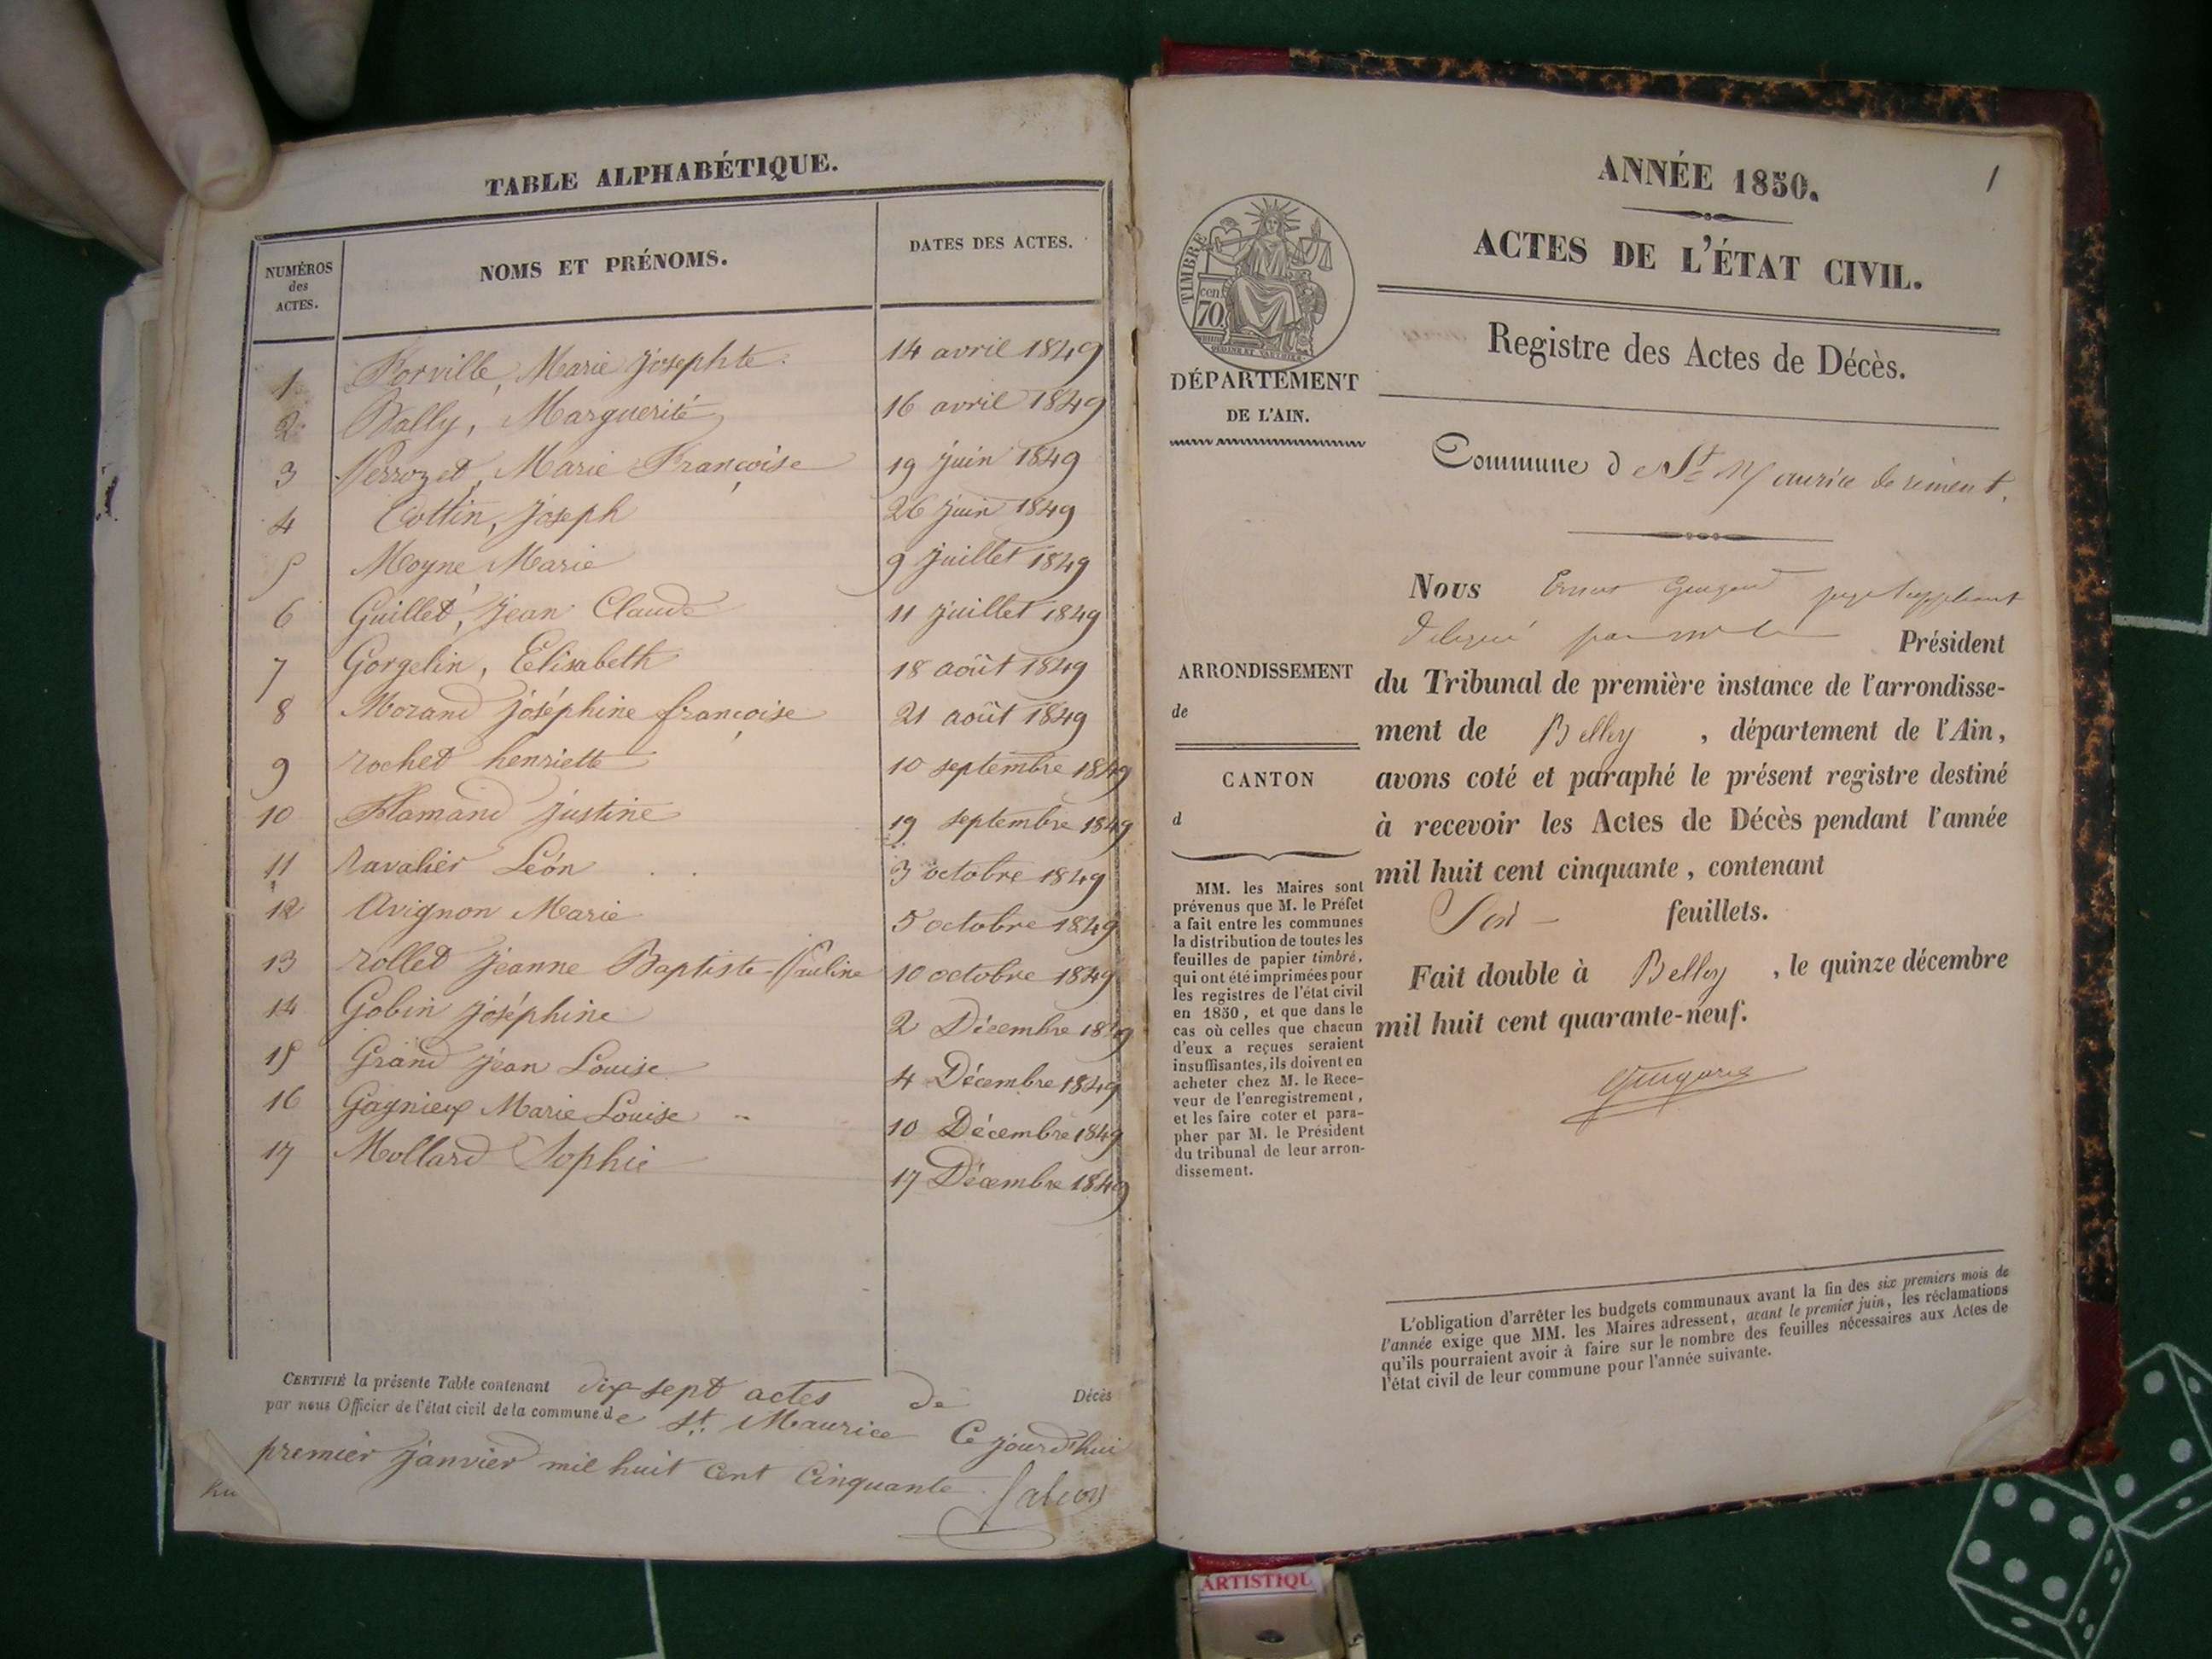 TABLE ALPHABÉTIQUE.
NUMÉROS des ACTES.
NOMS ET PRÉNOMS.
DATES DES ACTES.
1 Forville, Marie josephte 14 avril 1849
2 Bally, Marguerite 16 avril 1849
3 Perrozet, Marie Françoise 19 juin 1849
4 Cottin, joseph 26 juin 1849
5 Moyne, Marie 9 juillet 1849
6 Guillet, jean Claude 11 juillet 1849
7 Gorgelin, Elisabeth 18 août 1849
8 Morand joséphine françoise 21 août 1849
9 rochet henriette 10 septembre 1849
10 Flamand justine 19 septembre 1849
11 ravalier Léon 3 octobre 1849
12 Avignon Marie 5 octobre 1849
13 rollet jeanne Baptiste-Pauline 10 octobre 1849
14 Gobin joséphine 2 Décembre 1849
15 Grand jean Louise 4 Décembre 1849
16 Gagnieux Marie Louise 10 Décembre 1849
17 Mollard Sophie 17 Décembre 1849
CERTIFIÉ la présente Table contenant dix sept actes de Décès
par nous Officier de l'état civil de la commune de St. Maurice Ce jourd'hui
premier janvier mil huit cent cinquante.
1
ANNÉE 1850.
ACTES DE L'ÉTAT CIVIL.
Registre des Actes de Décès.
TIMBRE
cen.
70
DÉPARTEMENT
DE L'AIN.
Commune de St Maurice de rément.
Nous juge suppléant
délégué par Mr le Président
du Tribunal de première instance de l'arrondisse-
ment de Belley, département de l'Ain,
avons coté et paraphé le présent registre destiné
à recevoir les Actes de Décès pendant l'année
mil huit cent cinquante, contenant
feuillets.
Fait double à Belley, le quinze décembre
mil huit cent quarante-neuf.
ARRONDISSEMENT
de
CANTON
d
MM. les Maires sont
prévenus que M. le Préfet
a fait entre les communes
la distribution de toutes les
feuilles de papier timbré,
qui ont été imprimées pour
les registres de l'état civil
en 1850, et que dans le
cas où celles que chacun
d'eux a reçues seraient
insuffisantes, ils doivent en
acheter chez M. le Rece-
veur de l'enregistrement,
et les faire coter et para-
pher par M. le Président
du tribunal de leur arron-
dissement.
L'obligation d'arrêter les budgets communaux avant la fin des six premiers mois de
l'année exige que MM. les Maires adressent, avant le premier juin, les réclamations
qu'ils pourraient avoir à faire sur le nombre des feuilles nécessaires aux Actes de
l'état civil de leur commune pour l'année suivante.
ARTISTIQU